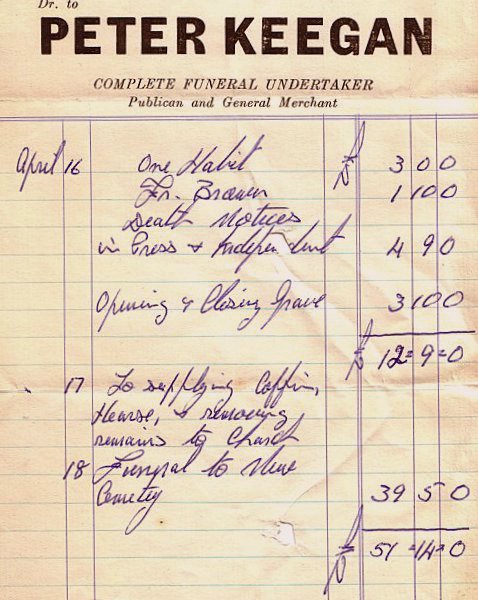 Dr. to
PETER KEEGAN
COMPLETE FUNERAL UNDERTAKER
Publican and General Merchant
April 16 One Habit £ 3 0 0
Fr. Brown 1 10 0
Death Notices
in Press & Independent 4 9 0
Opening & Closing Grave 3 10 0
£ 12=9=0
17 To supplying Coffin,
Hearse, & removing
remains to Church
18 Funeral to New
Cemetry 39 5 0
£ 51=14=0